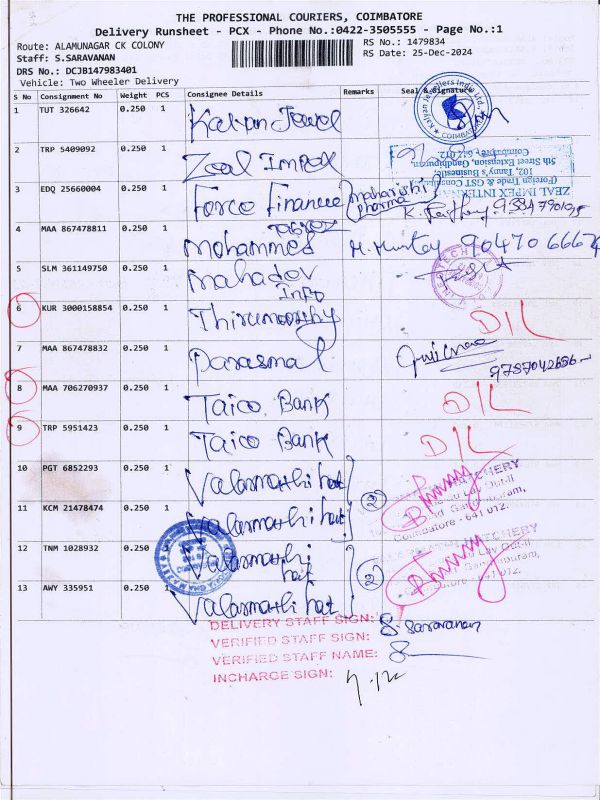 THE PROFESSIONAL COURIERS, COIMBATORE
Delivery Runsheet - PCX - Phone No.:0422-3505555 - Page No.:1
Route: ALAMUNAGAR CK COLONY
RS No.: 1479834
Staff: S.SARAVANAN
RS Date: 25-Dec-2024
DRS No.: DCJB147983401
Vehicle: Two Wheeler Delivery
S No Consignment No Weight PCS Consignee Details Remarks Seal & Signature
1 TUT 326642 0.250 1 Kalyan Jewel
COIMBATORE
2 TRP 5409092 0.250 1 Zeal Impex
ZEAL IMPEX
(Foreign Trade & GST Consultant)
102, Tanny's Businesste
5th Street Extension, Gandhipuram,
Coimbatore, 641 012.
3 EDQ 25660004 0.250 1 Force Finance Maharishi pharma
4 MAA 867478811 0.250 1 Mohammed M. Murtaz
5 SLM 361149750 0.250 1 Mahadev Info
6 KUR 3000158854 0.250 1 Thirumoorthy D/L
7 MAA 867478832 0.250 1 Parasmal
9787042686
8 MAA 706270937 0.250 1 Taico Bank D/L
9 TRP 5951423 0.250 1 Taico Bank D/L
10 PGT 6852293 0.250 1 Valarmathi hat
11 KCM 21478474 0.250 1 Valarmathi hat 2
Coimbatore - 641 012.
12 TNM 1028932 0.250 1 Valarmathi hat
13 AWY 335951 0.250 1 Valarmathi hat 2
DELIVERY STAFF SIGN: S. Saravanan
VERIFIED STAFF SIGN:
VERIFIED STAFF NAME:
INCHARGE SIGN: